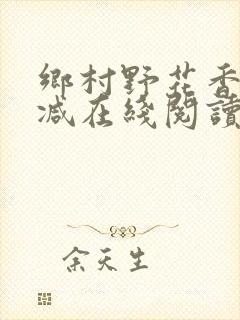 鄉村野花香
減在綫閱讀
余天生